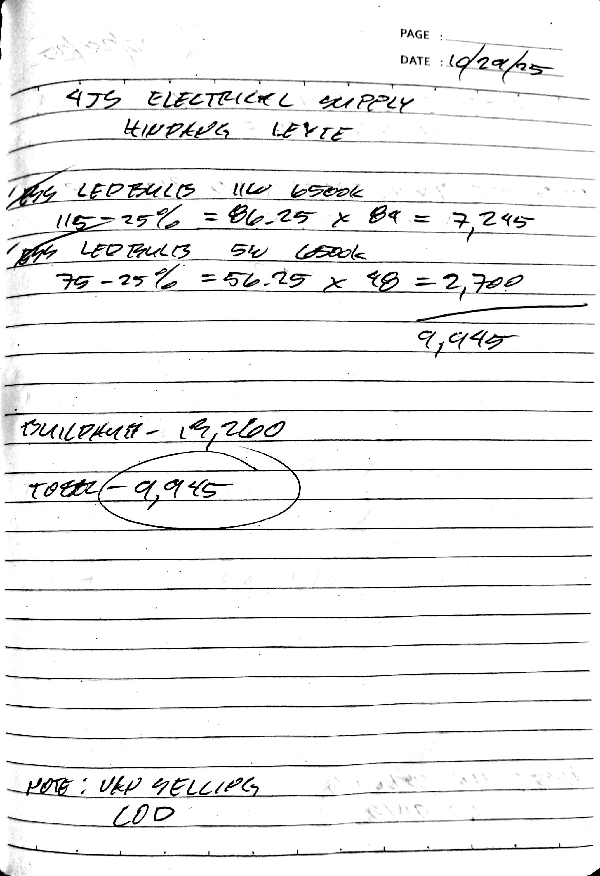 PAGE :
DATE : 10/29/25
4JS ELECTRICAL SUPPLY
HINDANG LEYTE
LED BULB 11W 6500K
115 - 25% = 86.25 x 84 = 7,245
LED BULB 5W 6500K
75 - 25% = 56.25 x 48 = 2,700
9,945
TOTAL - 9,945
NOTE : VAN SELLING
COD